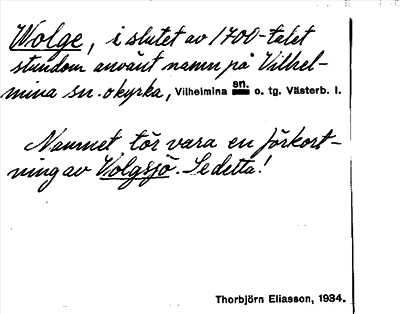 Wolge, i slutet av 1700-talet
stundom använt namn på Vilhel-
mina sn. o kyrka, Vilhelmina sn. o. tg. Västerb. l.
Namnet tör vara en förkort-
ning av Volgsjö. Se detta!
Thorbjörn Eliasson, 1934.